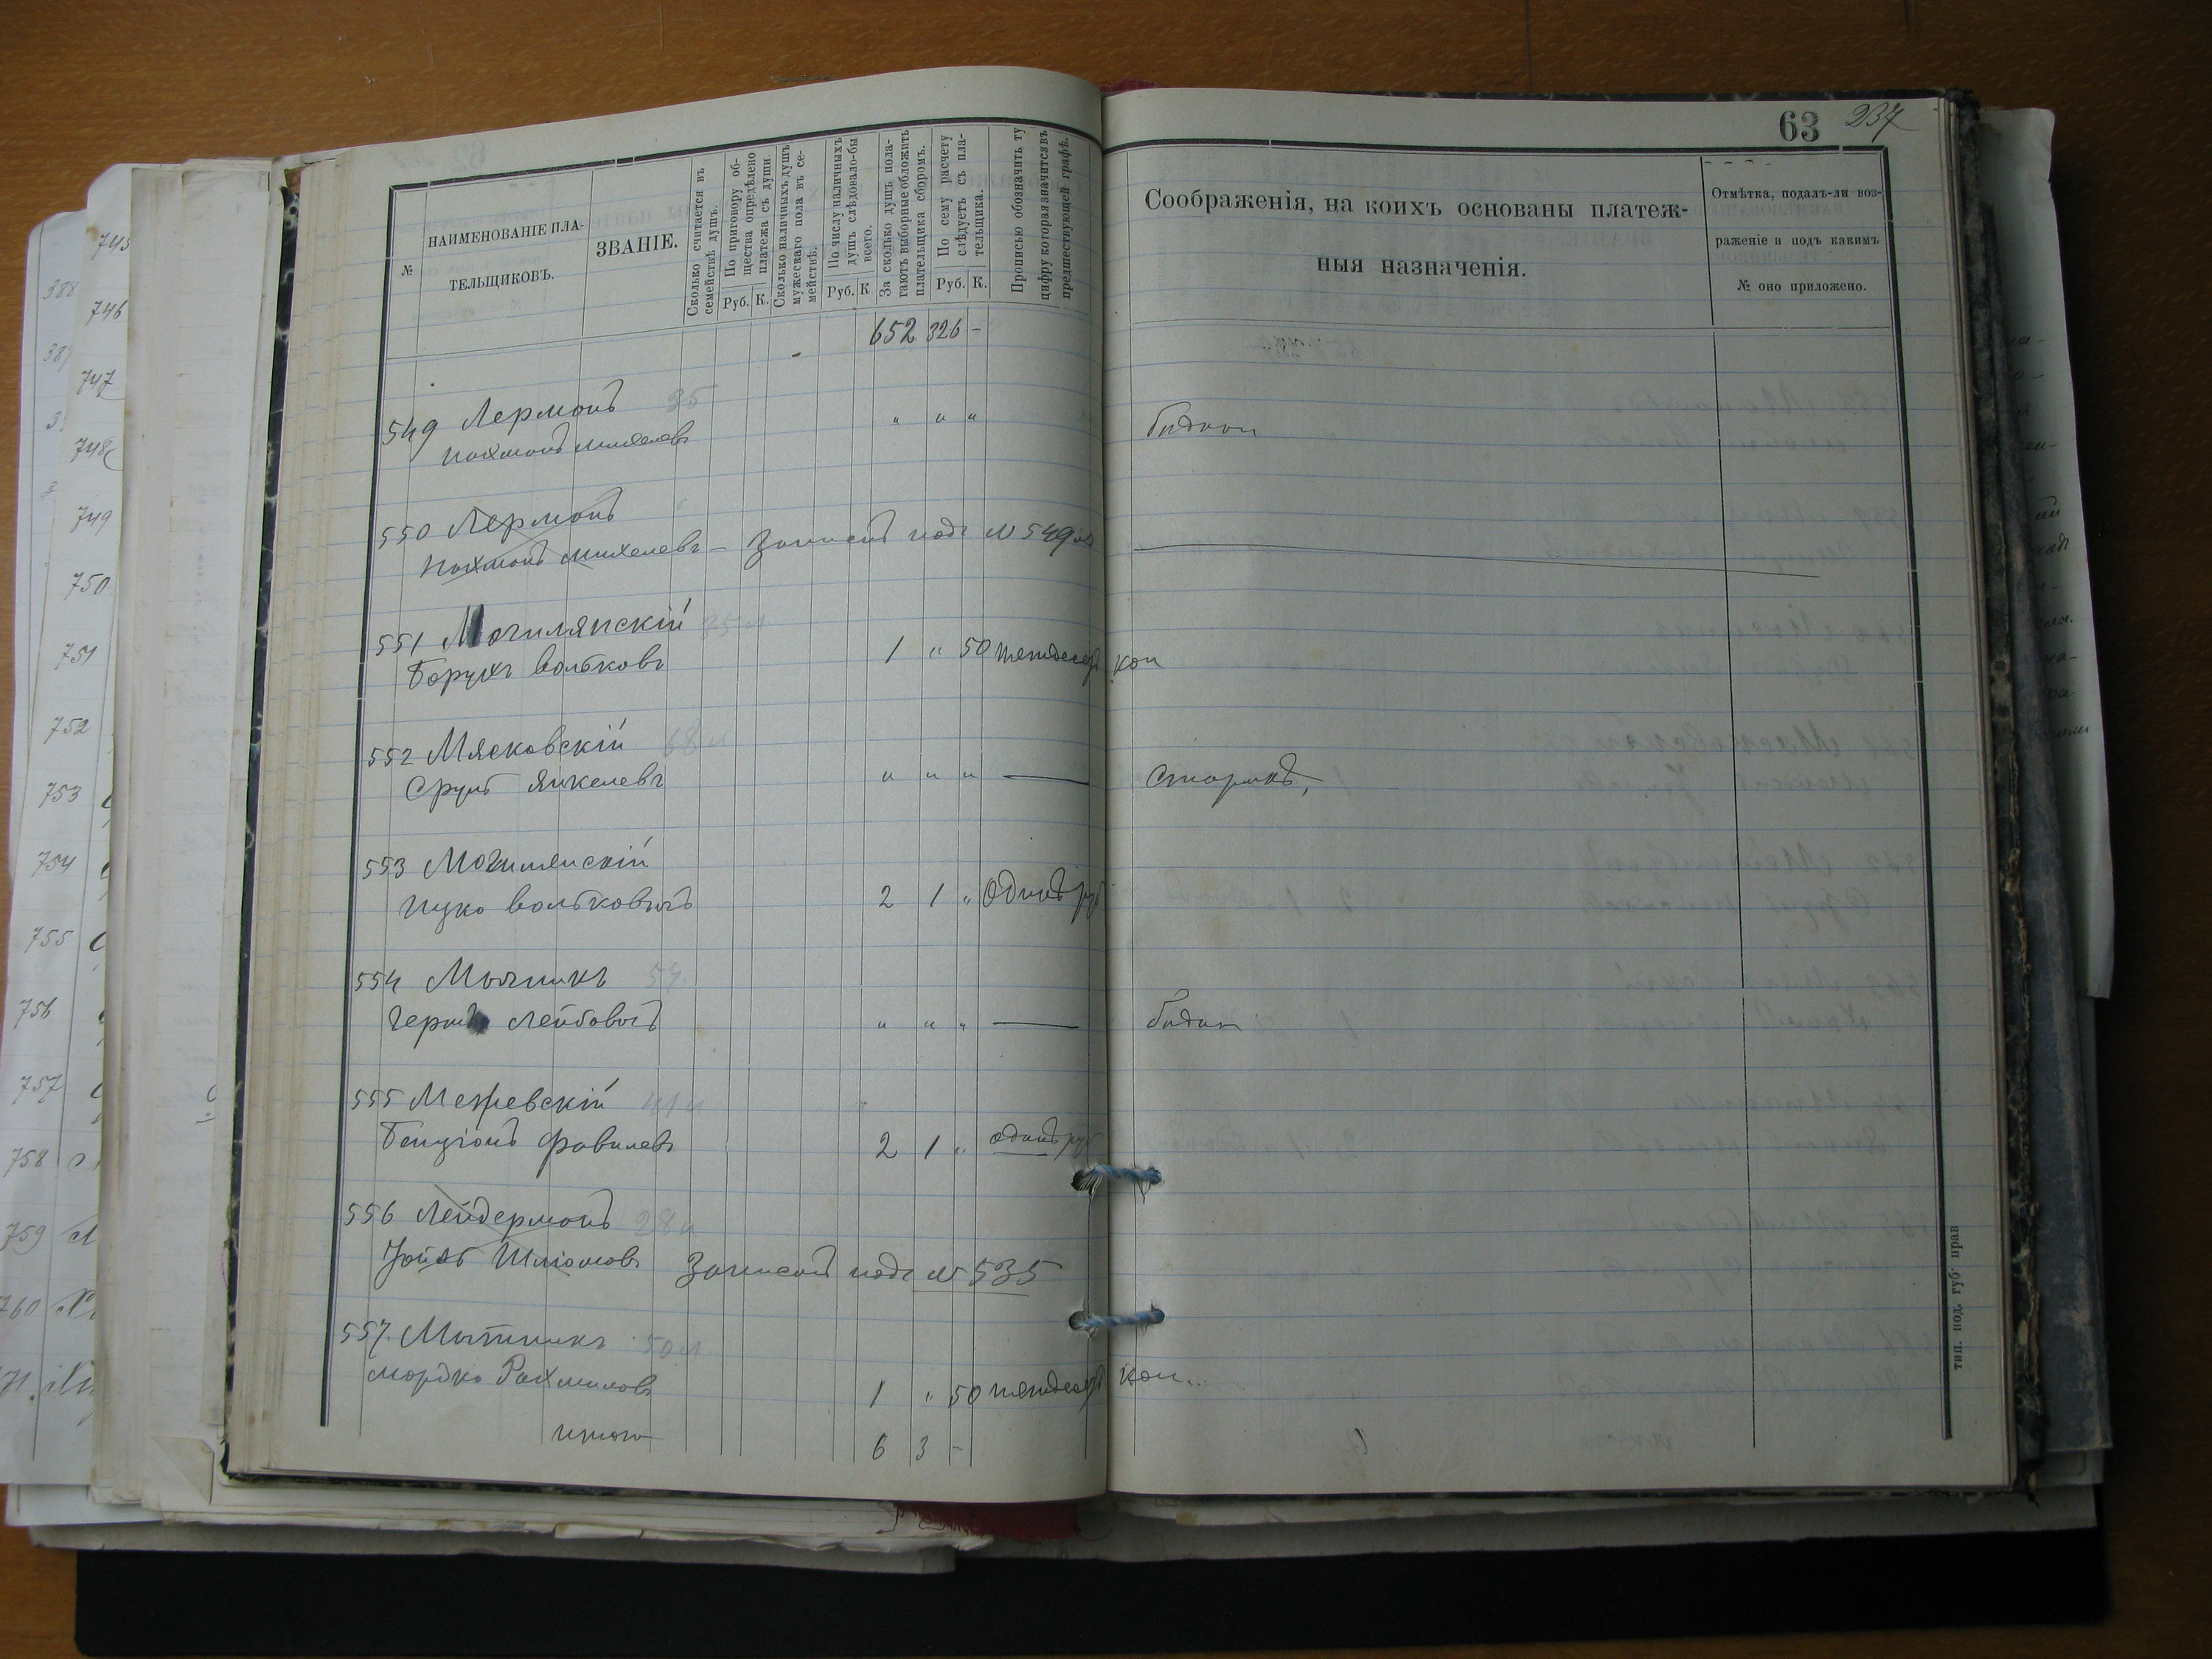 745
746
747
748
749
750
751
752
753
754
755
756
757
758
759
760
63 237
№
НАИМЕНОВАНІЕ ПЛА-
ТЕЛЬЩИКОВЪ.
ЗВАНІЕ.
Сколько считается въ
семействѣ душъ.
По приговору об-
щества опредѣлено
платежа съ души.
Руб. К.
Сколько наличныхъ душъ
мужескаго пола въ се-
мействѣ.
По числу наличныхъ
душъ слѣдовало-бы
всего.
Руб. К.
За сколько душъ пола-
гаютъ выборные обложить
плательщика сборомъ.
По сему расчету
слѣдуетъ съ пла-
тельщика.
Руб. К.
Прописью обозначить ту
цифру которая значится въ
предшествующей графѣ.
Соображенія, на коихъ основаны платеж-
ныя назначенія.
Отмѣтка, подалъ-ли воз-
раженіе и подъ какимъ
№ оно приложено.
652 326 -
549 Лерманъ 35
Нахманъ Михелевъ " " " бѣдный
550 Лерманъ
Нахманъ Михелевъ - Записанъ подъ № 549
551 Могилянскій
Борухъ Вольковъ 1 " 50 пятдесятъ коп
552 Мясковскій 68
Сруль Янкелевъ " " " — Старикъ,
553 Могилянскій
Ицко Вольковичъ 2 1 " Одинъ руб
554 Мычникъ 54
Гершъ Лейбовичъ " " " — бѣдный
555 Межевскій 41
Бенціонъ Фавилевъ 2 1 " один руб
556 Лейдерманъ 28
Іойль Шліомовъ Записанъ подъ № 535
557. Мытникъ 50
Мордко Рахмиловъ 1 " 50 пятдесятъ коп..
итого 6 3 -
тип. под. губ. прав